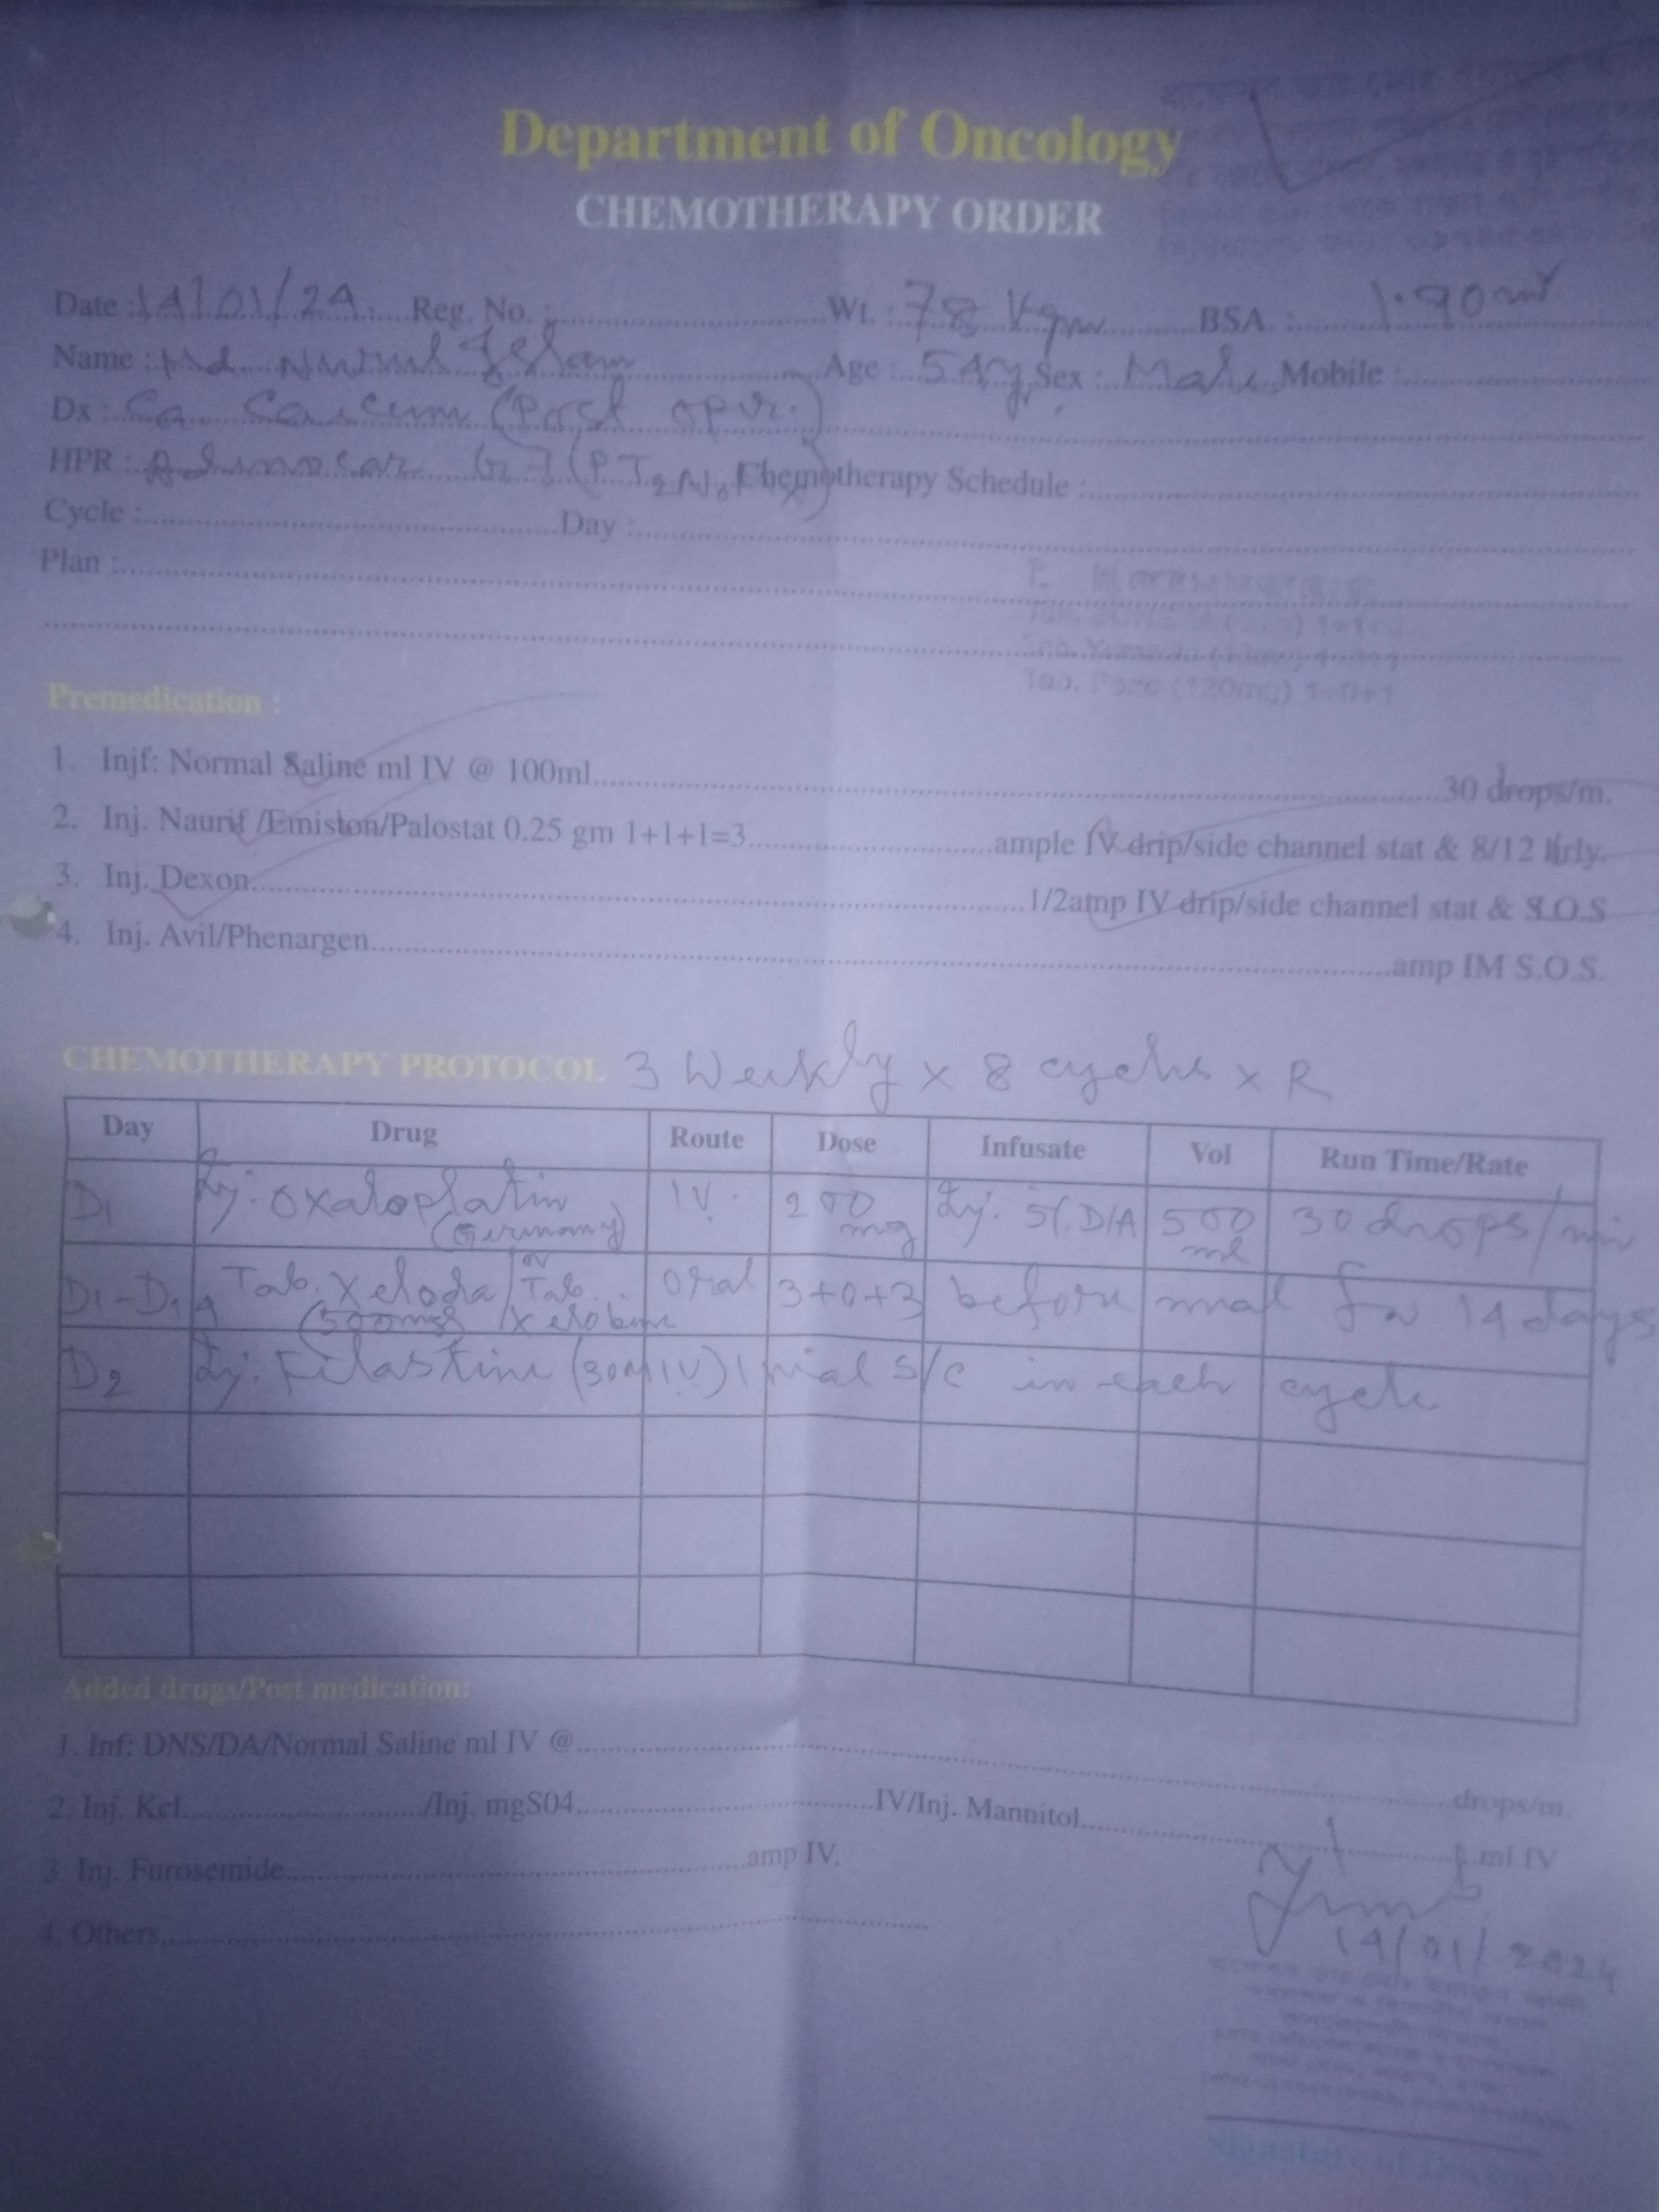 Department of Oncology
CHEMOTHERAPY ORDER
Date : 14/01/24 Reg. No. : Wt. : 78 Kgm BSA. : 1.90 m²
Name : Md. Nurul Islam Age : 54y Sex : Male Mobile :
Dx : Ca. Caecum (Post opr.)
HPR : Adenocar Chemotherapy Schedule :
Cycle : Day :
Plan :
Premedication :
1. Injf: Normal Saline ml IV @ 100ml 30 drops/m.
2. Inj. Naurif /Emiston/Palostat 0.25 gm 1+1+1=3 ample IV drip/side channel stat & 8/12 hrly.
3. Inj. Dexon 1/2amp IV drip/side channel stat & S.O.S
4. Inj. Avil/Phenargen amp IM S.O.S.
CHEMOTHERAPY PROTOCOL 3 Weekly x 8 cycles x R
Day Drug Route Dose Infusate Vol Run Time/Rate
D1 Inj. Oxaloplatin (Germany) IV. 200 mg Inj. 5% D/A 500 ml 30 drops/min
D1-D14 Tab. Xeloda / or Tab. Xelobine (500mg) Oral 3+0+3 before meal for 14 days
D2 Inj. Filastine (30MIU) 1 vial S/C in each cycle
Added drugs/Post medication:
1. Inf: DNS/DA/Normal Saline ml IV @ drops/m.
2. Inj. Kcl /Inj. mgS04 IV/Inj. Mannitol ml IV
3. Inj. Furosemide amp IV.
4. Others,
14/01/2024
Signature of